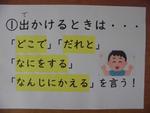 ①出かけるときは・・・
「どこで」「だれと」
「なにをする」
「なんじにかえる」を言う！